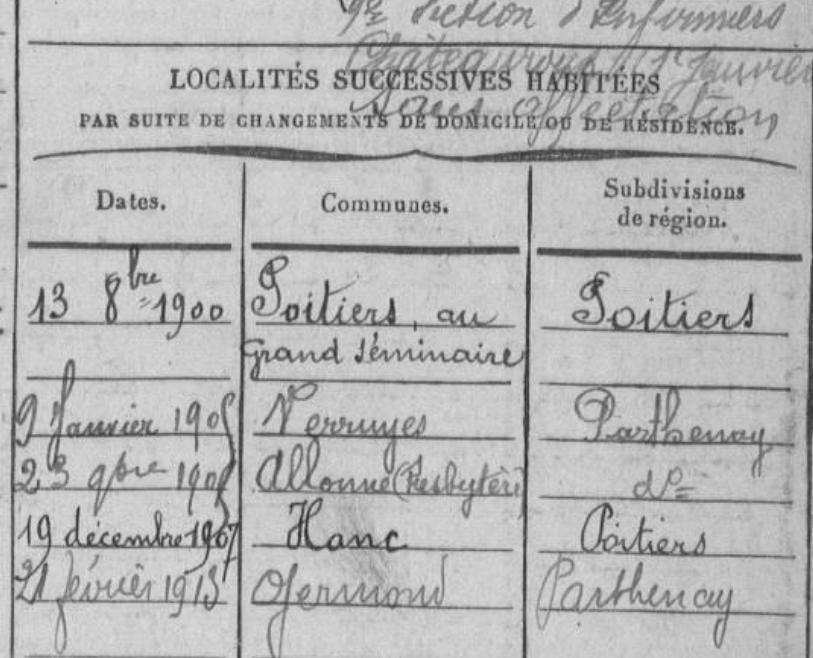 9e Section d'Infirmiers
Châteauroux 1er Janvier
Sans affectation
LOCALITÉS SUCCESSIVES HABITÉES
PAR SUITE DE CHANGEMENTS DE DOMICILE OU DE RÉSIDENCE.
Dates. Communes. Subdivisions
de région.
13 8bre 1900 Poitiers, au Poitiers
Grand Séminaire
9 Janvier Verruyes Parthenay
23 9bre Allonne (Presbytère) do
19 décembre 1907 Hanc Poitiers
21 février 1913 Germond Parthenay